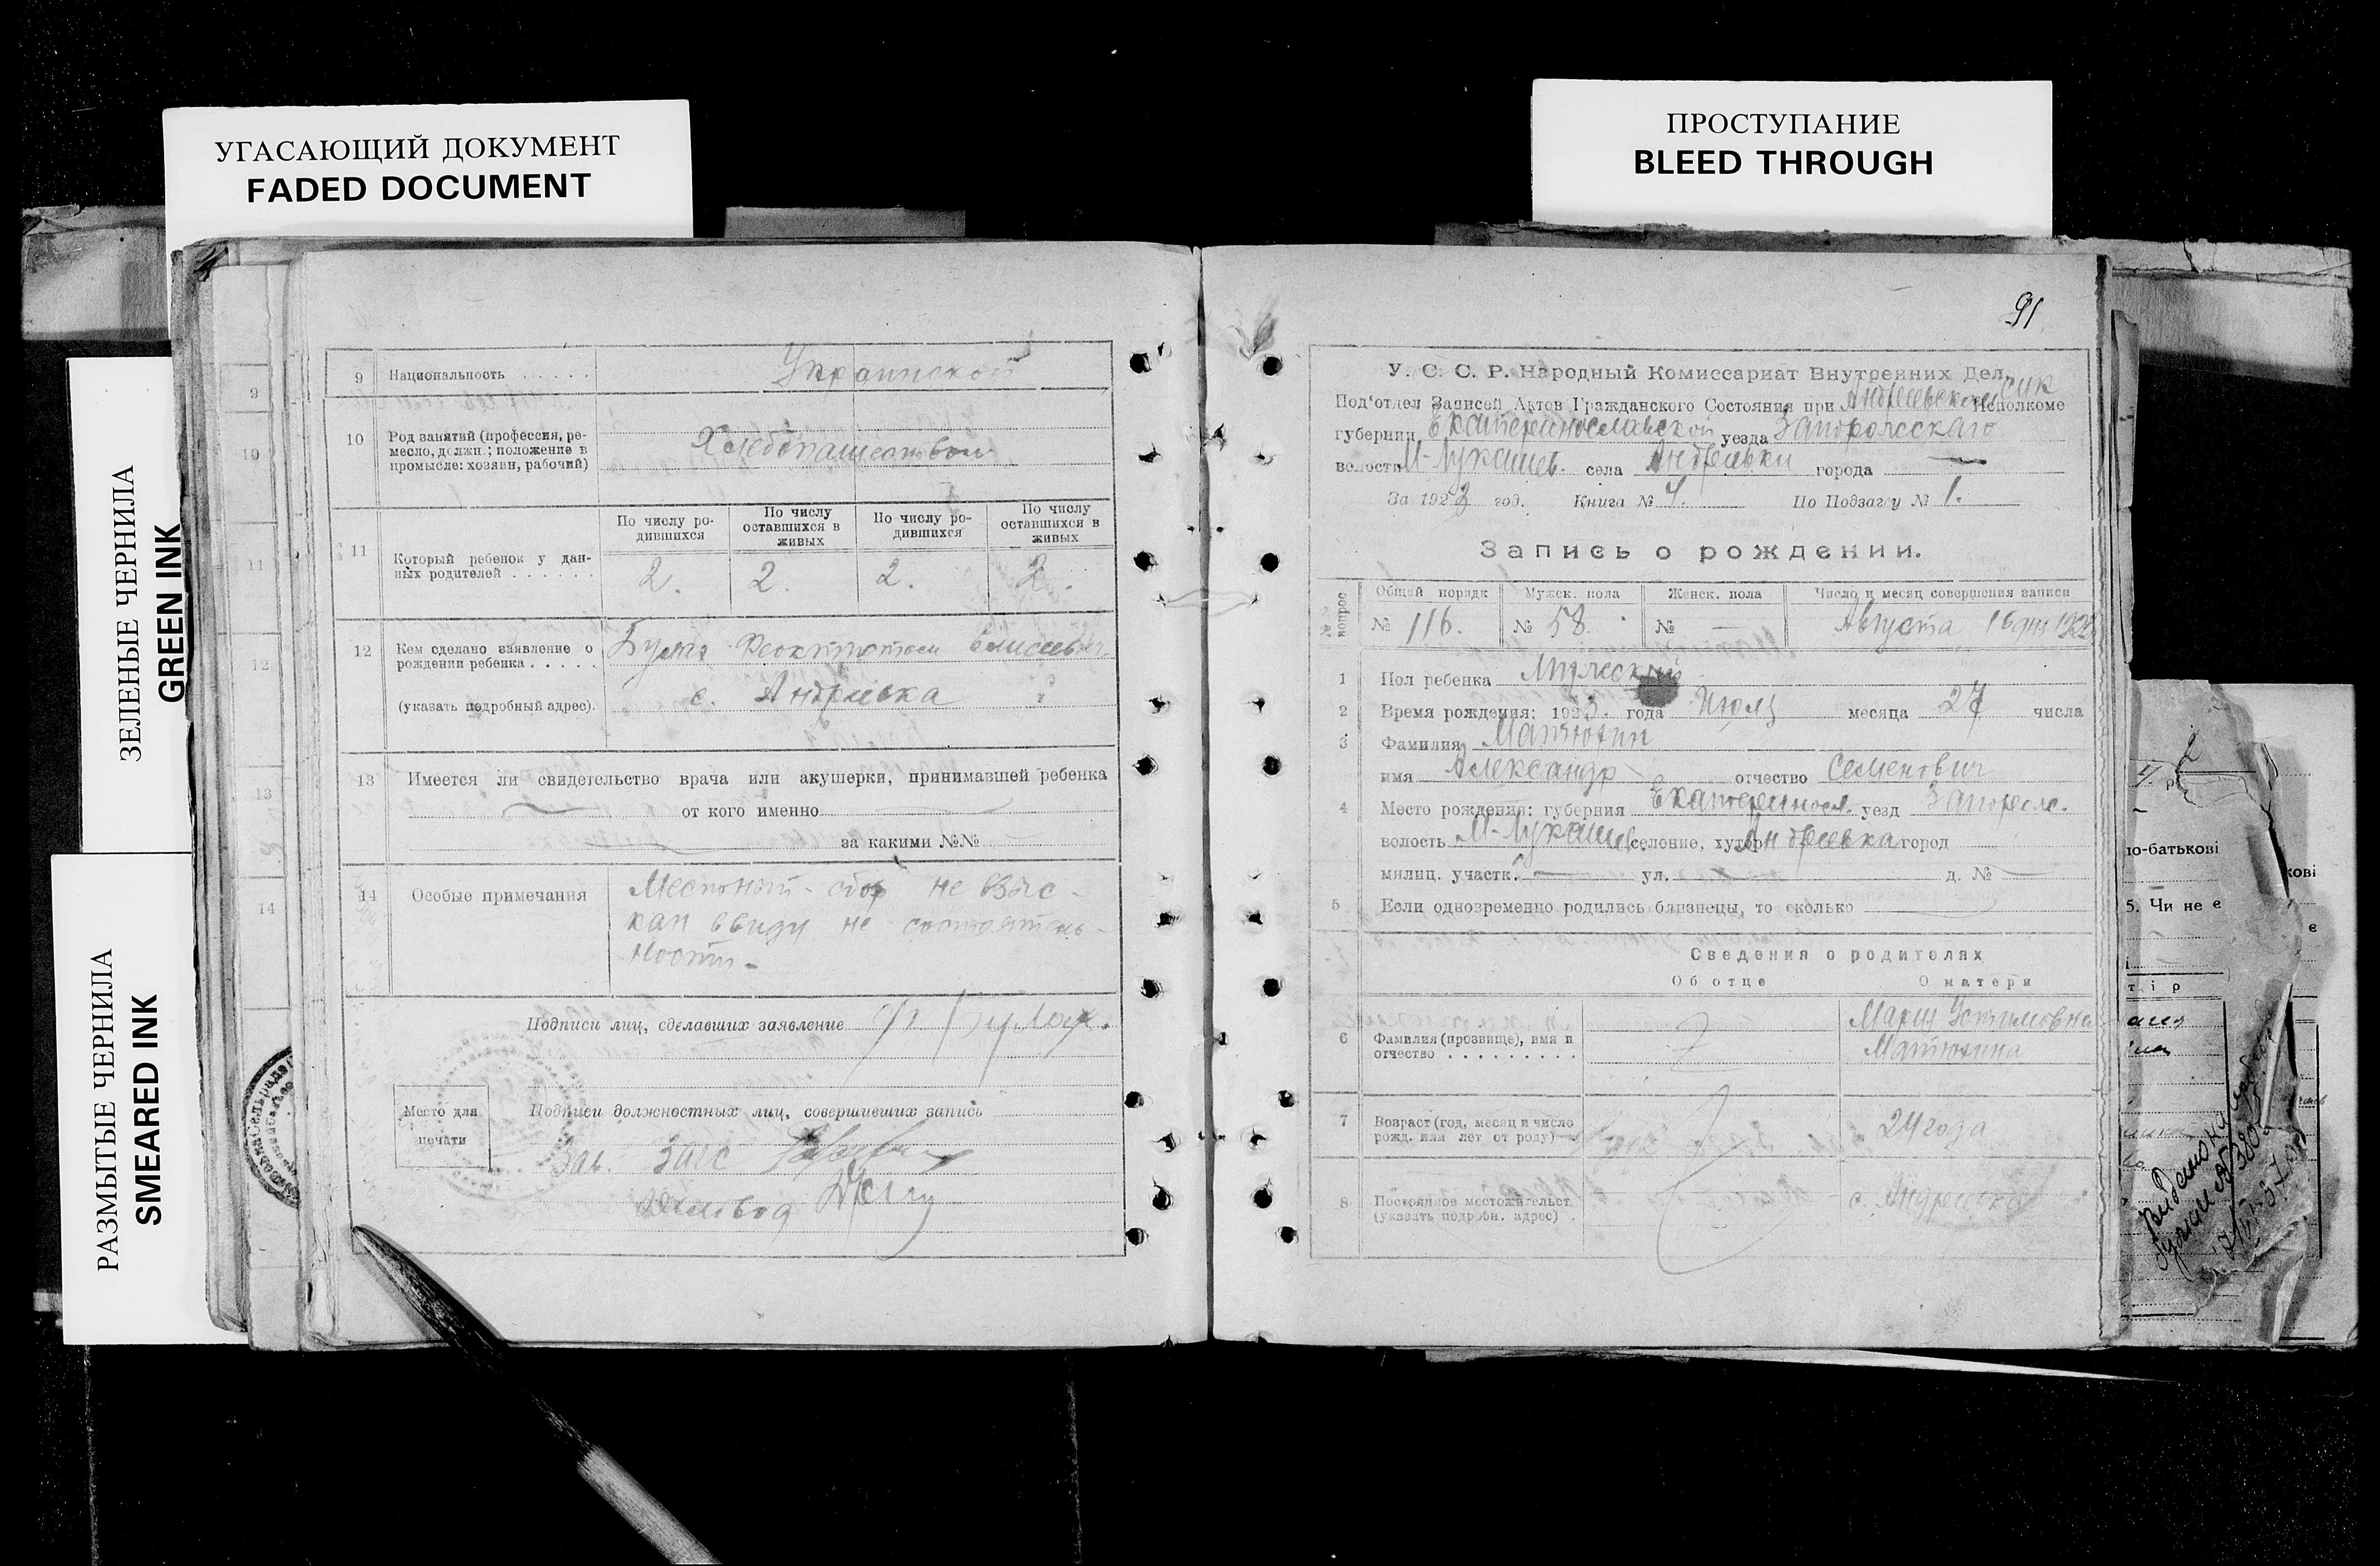 УГАСАЮЩИЙ ДОКУМЕНТ
FADED DOCUMENT
ПРОСТУПАНИЕ
BLEED THROUGH
ЗЕЛЕНЫЕ ЧЕРНИЛА
GREEN INK
РАЗМЫТЫЕ ЧЕРНИЛА
SMEARED INK
9
10
11
12
13
14
9 Национальность . . . . . Украинской
10 Род занятий (профессия, ре-
месло, должн.; положение в
промысле: хозяин, рабочий)
Хлебопашеством
11 Который ребенок у дан-
ных родителей . . . . . .
По числу ро-
дившихся
По числу
оставшихся в
живых
По числу ро-
дившихся
По числу
оставшихся в
живых
2. 2. 2. 2.
12 Кем сделано заявление о
рождении ребенка . . . . .
Булах
(указать подробный адрес). с. Андреевка
13 Имеется ли свидетельство врача или акушерки, принимавшей ребенка
от кого именно
за какими №№
14 Особые примечания
Местный сбор не взыс-
кан ввиду не состоятель-
ности-
Подписи лиц, сделавших заявление Булах.
Место для
печати
Подписи должностных лиц, совершивших запись
Зав. Загс
91
У. С. С. Р. Народный Комиссариат Внутренних Дел.
Под'отдел Записей Актов Гражданского Состояния при Андреевском Исполкоме
губернии Екатеринославской уезда Запорожскаго
волости М-Лукашев. села Андреевки города —
За 1923 год. Книга № 4. По Подзагсу № 1.
Запись о рождении.
№№ вопрос
Общий порядк Мужск. пола Женск. пола Число и месяц совершения записи
№ 116. № 58. № — Августа 16 дня 1923
1 Пол ребенка Мужеский
2 Время рождения: 1923. года Июля месяца 27 числа
3 Фамилия Матюхин
имя Александр отчество Семенович
4 Место рождения: губерния Екатериносл. уезд Запорож.
волость М-Лукашев. селение, хутор Андреевка город
милиц. участк. — ул. — д. № —
5 Если одновременно родились близнецы, то сколько
Сведения о родителях
Об отце О матери
6 Фамилия (прозвище), имя и
отчество . . . . . . . . .
Мария Устимовна
Матюхина
7 Возраст (год, месяц и число
рожд. или лет от роду)
24 года
8 Постоянное местожительст.
(указать подробн. адрес) .
с. Андреевка
по-батькові
5. Чи не є